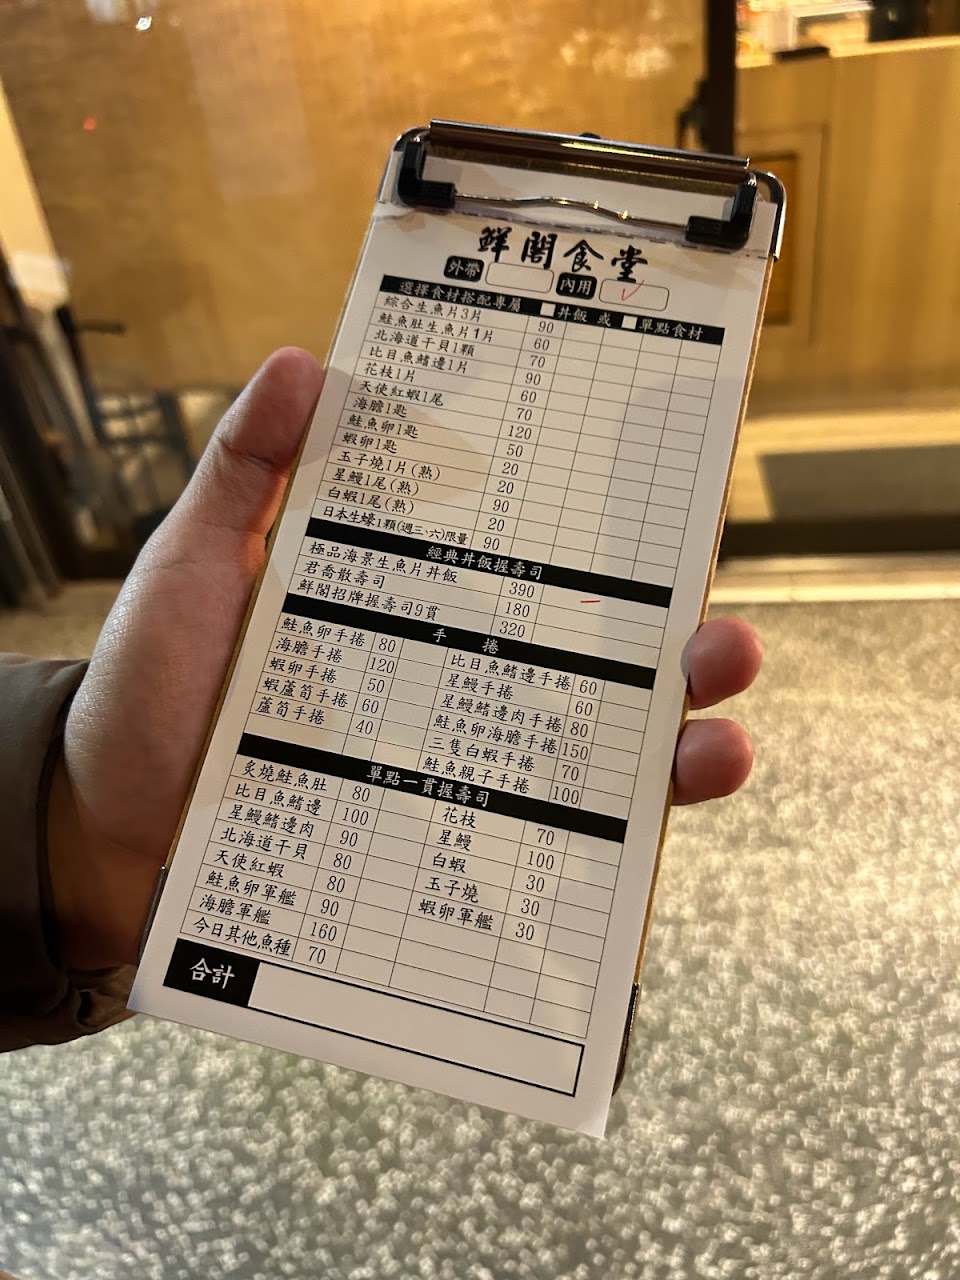 鮮閣食堂
外帶 內用
選擇食材搭配專屬 丼飯 或 單點食材
綜合生魚片3片 90
鮭魚肚生魚片1片 60
北海道干貝1顆 70
比目魚鰭邊1片 90
花枝1片 60
天使紅蝦1尾 70
海膽1匙 120
鮭魚卵1匙 50
蝦卵1匙 20
玉子燒1片(熟) 20
星鰻1尾(熟) 90
白蝦1尾(熟) 20
日本生蠔1顆(週三、六)限量 90
經典丼飯握壽司
極品海景生魚片丼飯 390
君喬散壽司 180
鮮閣招牌握壽司9貫 320
手 捲
鮭魚卵手捲 80 比目魚鰭邊手捲 60
海膽手捲 120 星鰻手捲 60
蝦卵手捲 50 星鰻鰭邊肉手捲 80
蝦蘆筍手捲 60 鮭魚卵海膽手捲 150
蘆筍手捲 40 三隻白蝦手捲 70
鮭魚親子手捲 100
單點一貫握壽司
炙燒鮭魚肚 80 花枝 70
比目魚鰭邊 100 星鰻 100
星鰻鰭邊肉 90 白蝦 30
北海道干貝 80 玉子燒 30
天使紅蝦 80 蝦卵軍艦 30
鮭魚卵軍艦 90
海膽軍艦 160
今日其他魚種 70
合計